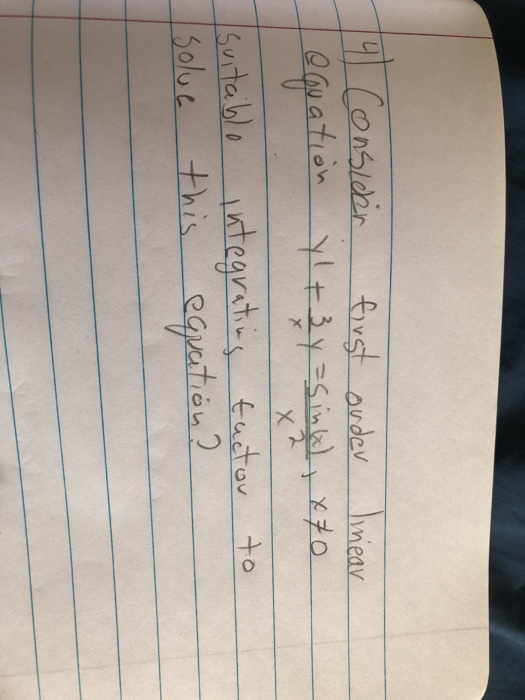 4) Consider first order linear
equation y' + 3/x y = sin(x)/x^2, x≠0
suitable integrating factor to
solve this equation?